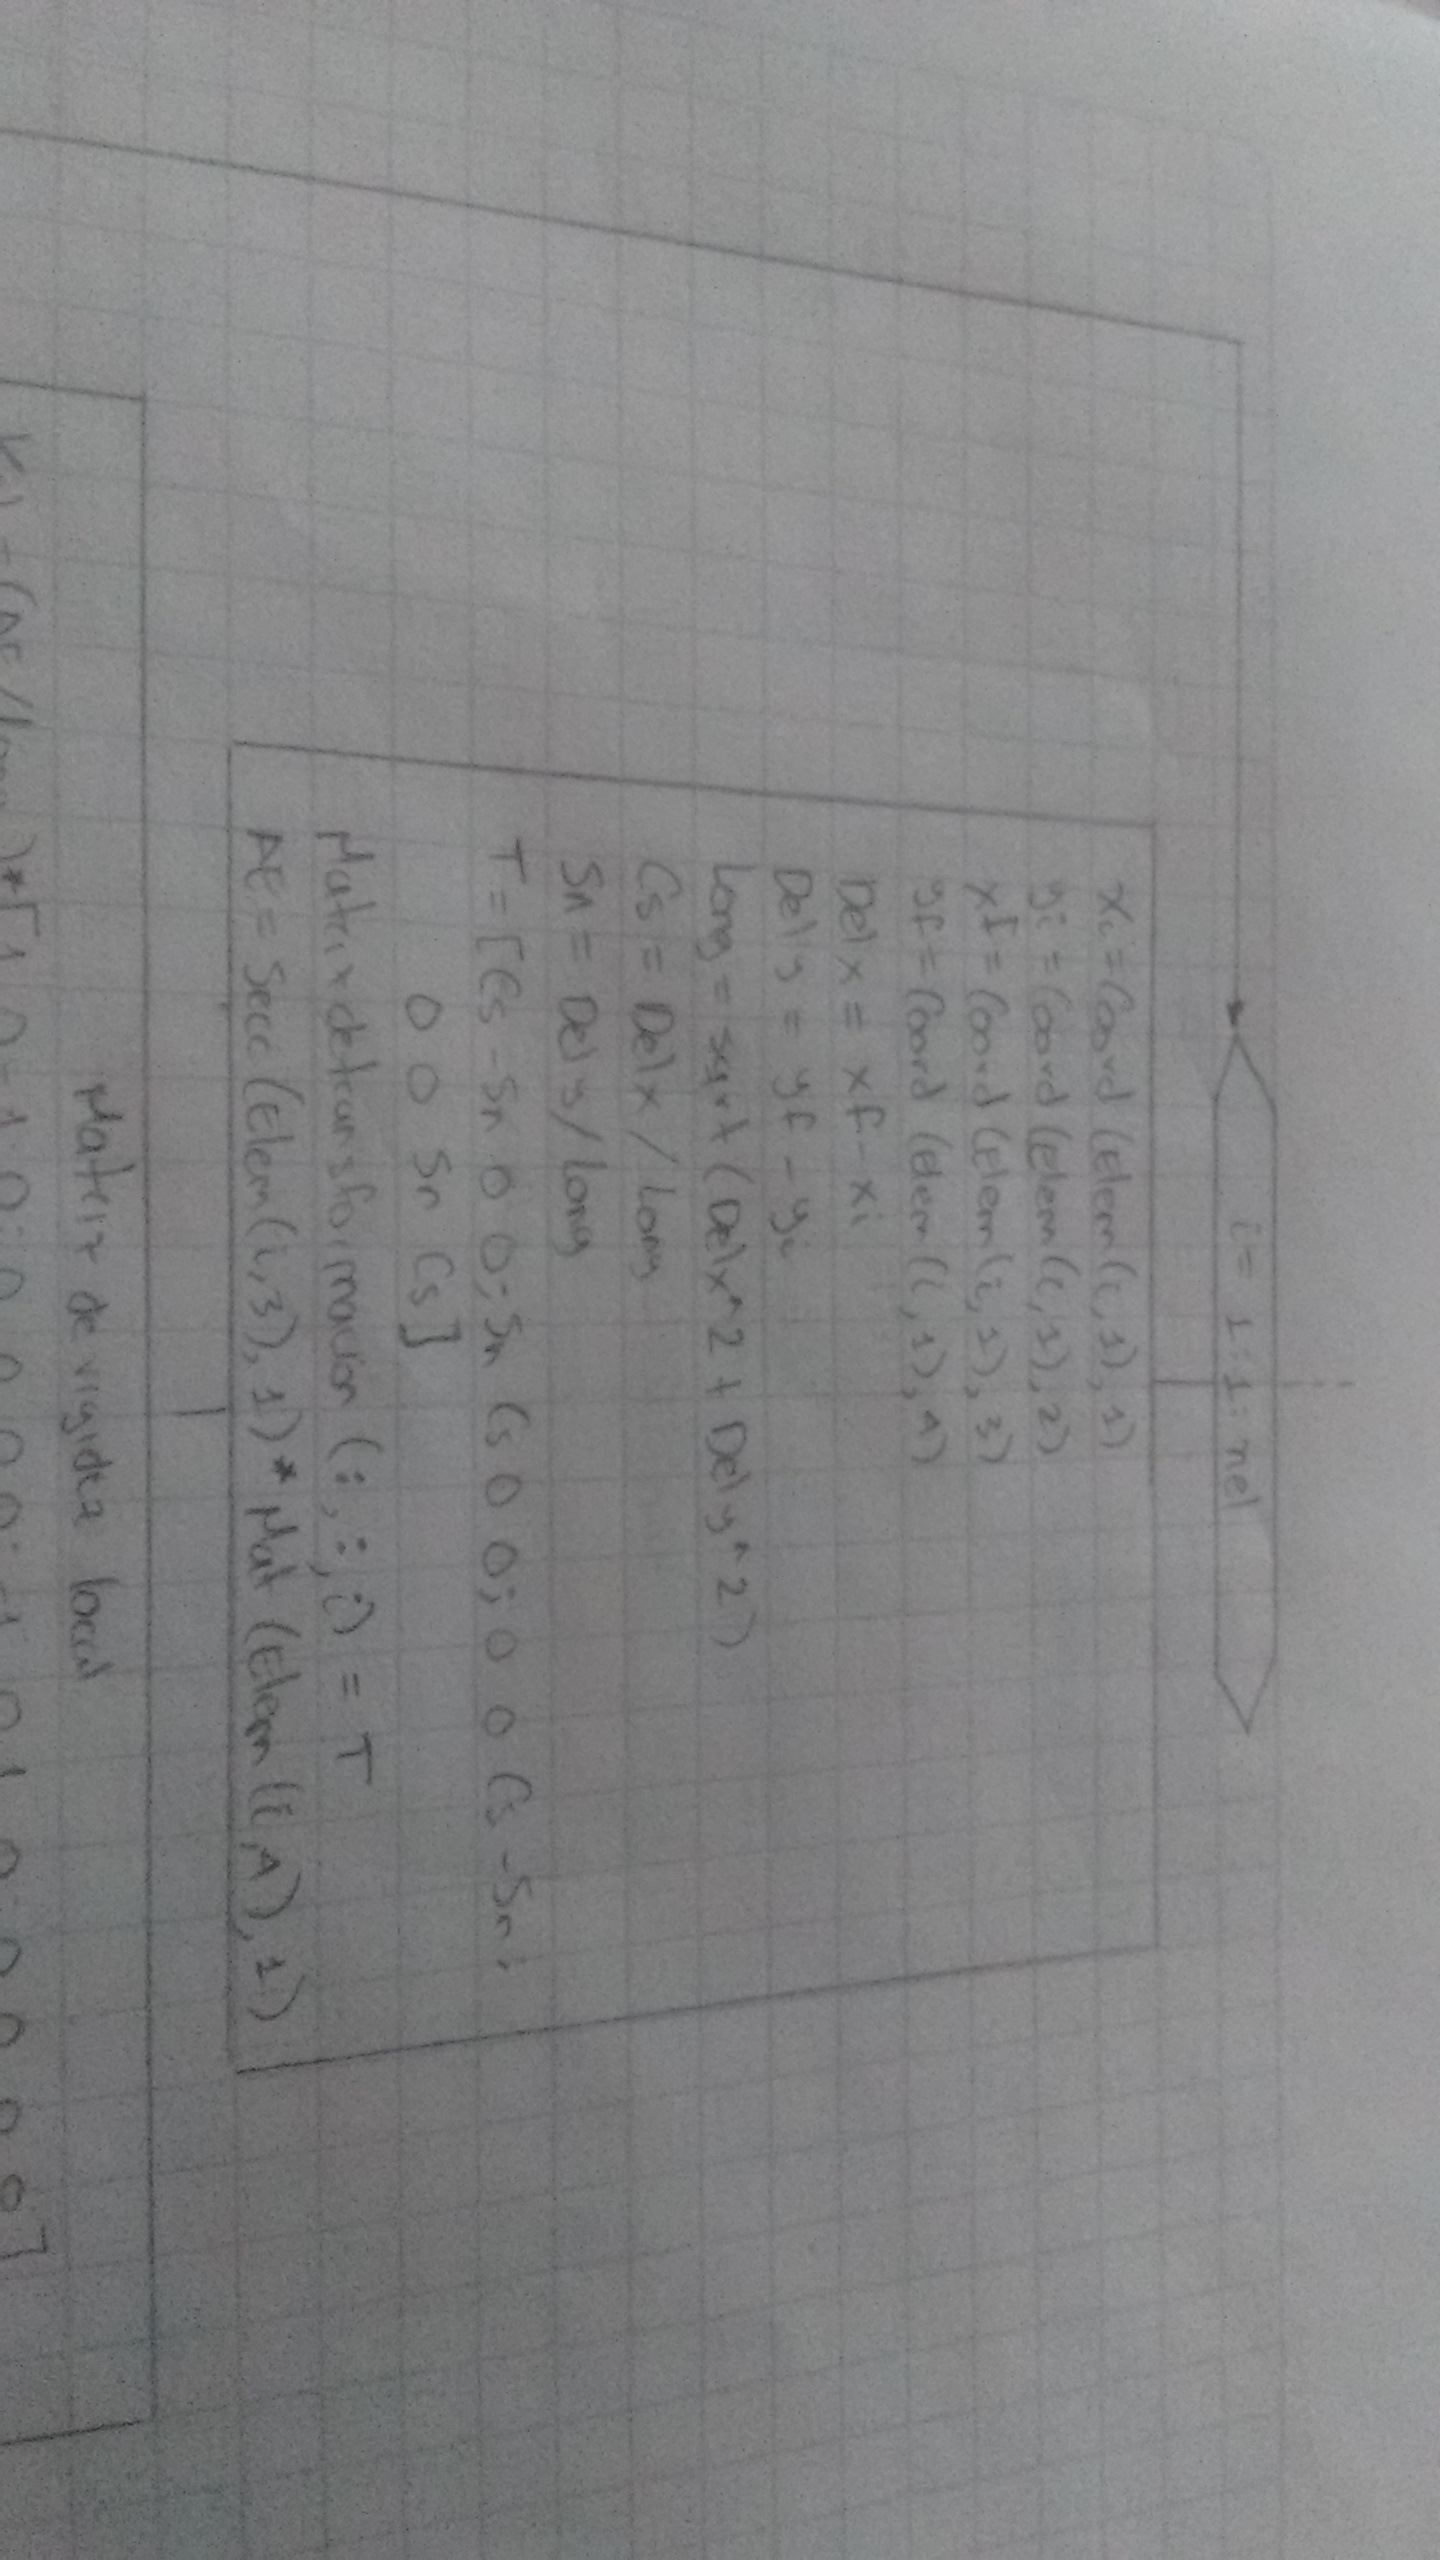 i = 1:1:nel
xi = Coord (Elem(i,1),1)
yi = Coord (Elem(i,1),2)
xf = Coord (Elem(i,1),3)
yf = Coord (Elem(i,1),4)
Del x = xf - xi
Del y = yf - yi
Long = sqrt (Delx^2 + Dely^2)
Cs = Delx / Long
Sn = Dely / Long
T = [Cs -Sn 0 0; Sn Cs 0 0; 0 0 Cs -Sn;
0 0 Sn Cs]
Matrixdetransformacion (:,:,i) = T
AE = Secc (Elem(i,3),1) * Mat (Elem(i,4),1)
Matriz de rigidez local
Kel = (AE/long)*[1 0 -1 0; 0 0 0 0; -1 0 1 0; 0 0 0 0]